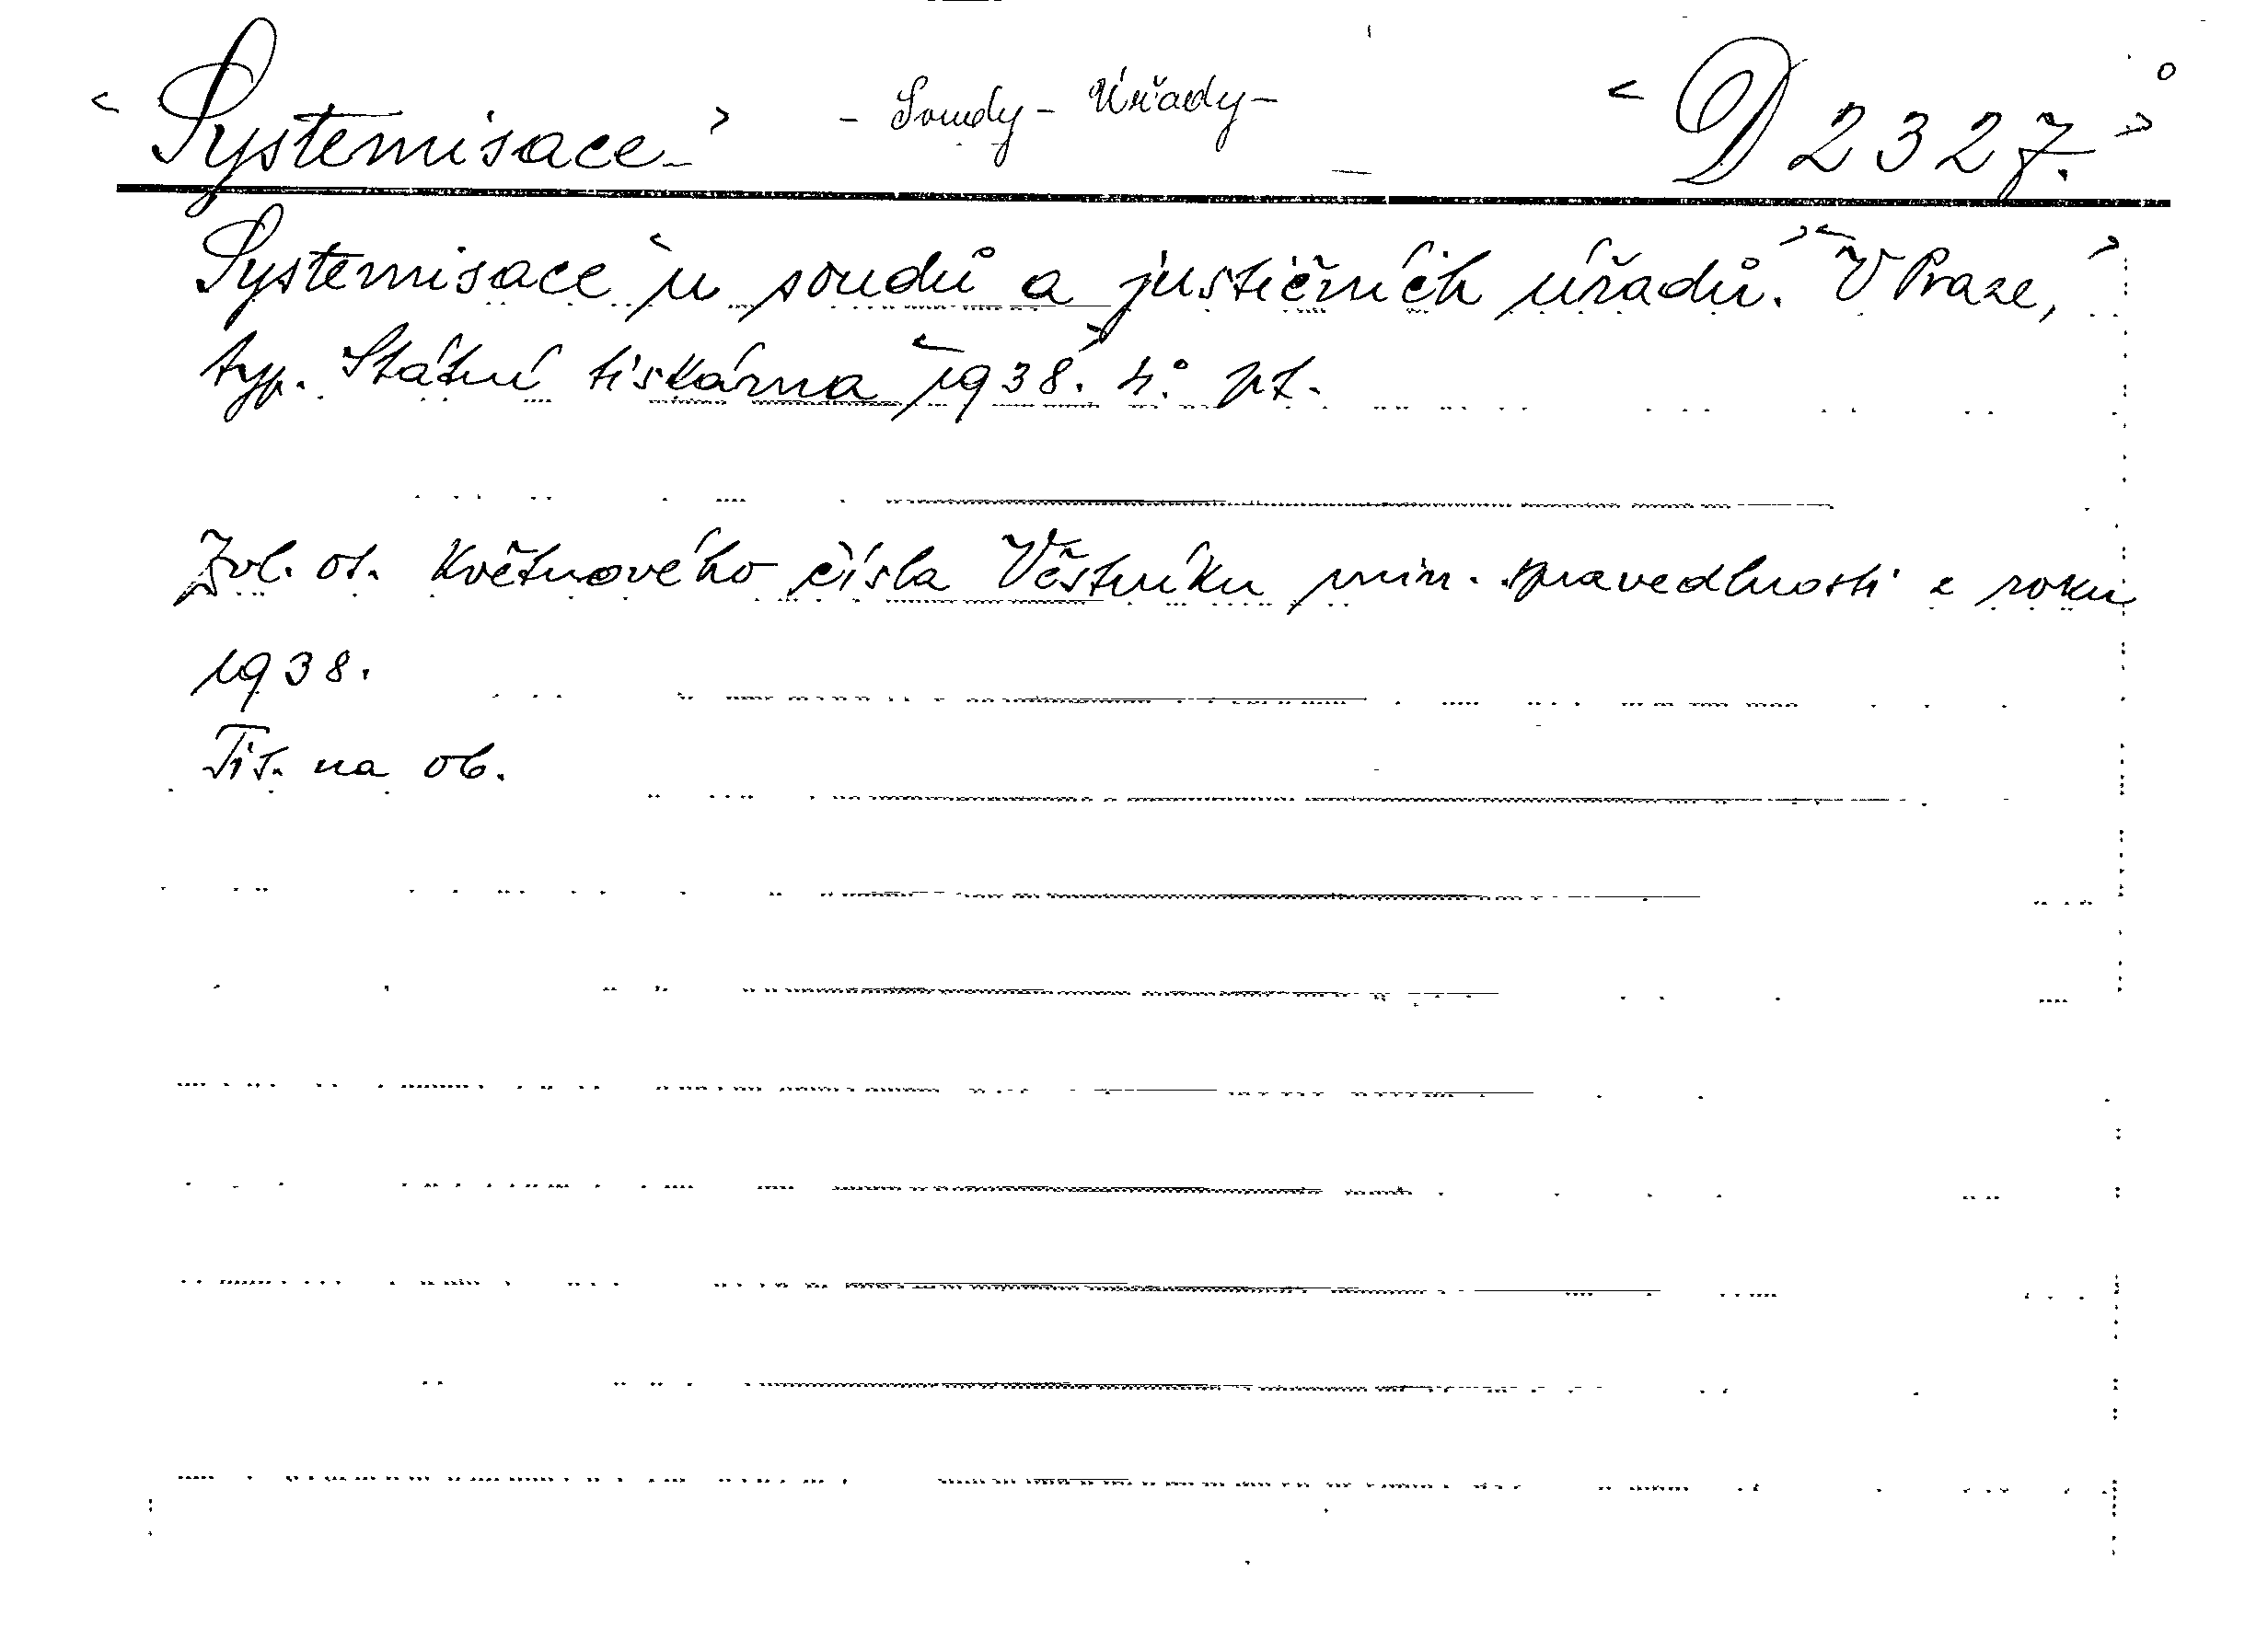 <Systemisace> - Soudy - Úřady - <D 2327.>
Systemisace <u soudů a justičních úřadů.> <V Praze,>
typ. Státní tiskárna <1938.> 4°.
Zvl. ot. květnového čísla Věstníku min. spravedlnosti z roku
1938.
Tit. na ob.